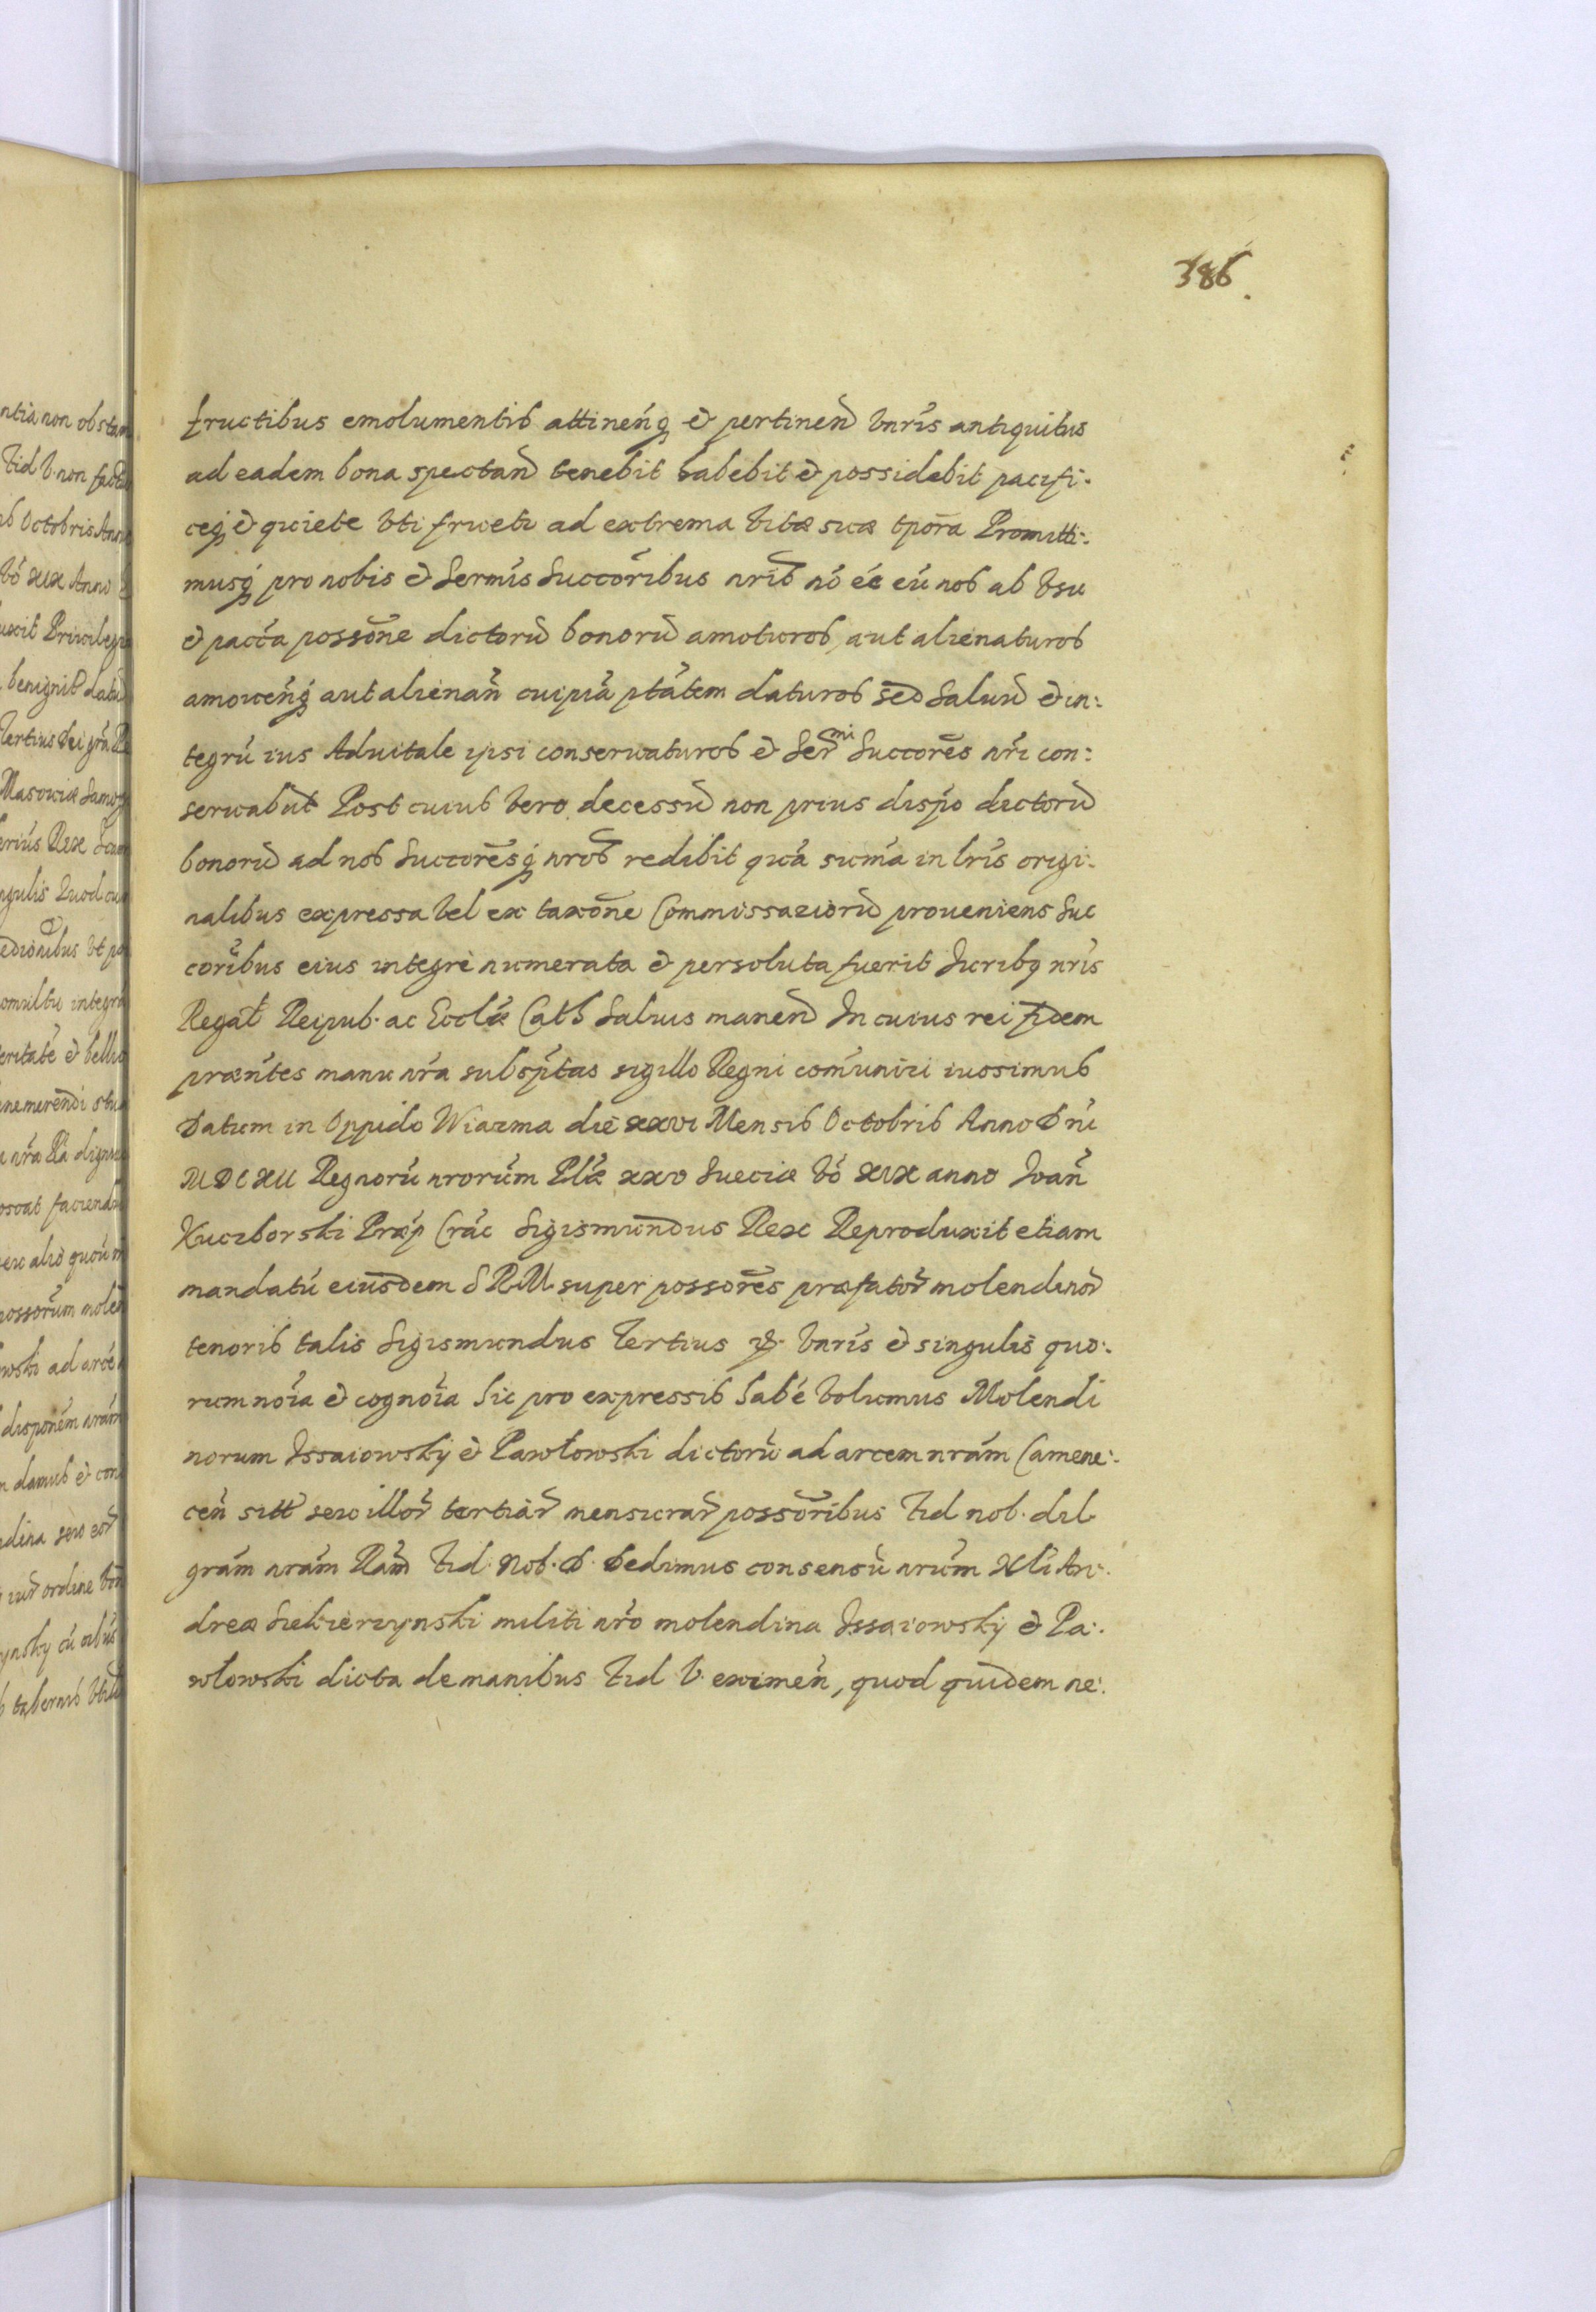 386.
fructibus emolumentis attineñq. et pertineñ vnr̃is antiquitus
ad eadem bona spectañ tenebit habebit et possidebit pacifi:
ceq. et quiete vti fruetr ad extrema vitæ suæ tp̃ora Promitti:
musq. pro nobis et Serm̃is Succor̃ibus nris nõ eẽ eũ nos ab vsu
et pacc̃a posson̄e dictorũ bonorũ amoturos, aut alienaturos
amoueñq. aut alienañ cuipiã ptãtem daturos sed Saluũ et in:
tegrũ ius Aduitale ipsi conseruaturos et Sermi Succor̃es nr̃i con:
seruabũt Post cuius vero decessũ non prius disp̃o dictorũ
bonorũ ad nos Succor̃esq. nros redibit quã sum̃a in lr̃is origi:
nalibus expressa vel ex taxon̄e Commissariorũ proueniens Suc
cor̃ibus eius integrè numerata et persoluta fuerit Juribq nr̃is
Regał Reipub. ac Ecclæ Cath Saluis maneñ In cuius rei fidem
præñtes manu nr̃a subsp̃tas sigillo Regni com̃uniri iussimus
Datum in Oppido Wiazma die xxvi Mensis Octobris Anno Dñi
MDCXII Regnorũ nrorũm Plæ xxv Sueciæ võ xix anno Joañ
Kuczborski Præp Crãc Sigismundus Rex Reproduxit etiam
mandatũ eiusdem S R M. super possor̃es præfator̃ molendinor̃
tenoris talis Sigismundus Tertius &. vnr̃is et singulis quo:
rum noĩa et cognoĩa hic pro expressis habẽ volumus Molendi
norum Issaiowskÿ et Pawłowski dictorũ ad arcem nrãm Camene:
ceñ sitt seu illor̃ tertiar̃ mensurar̃ possor̃ibus Fid nob. dil.
grãm nrãm Rãm Fid. Nob. D. Dedimus consensũ nrũm Gli An:
dreæ Siekierzynski militi nr̃o molendina Issaiowskÿ et Pa:
włowski dicta de manibus Fid V. eximeñ, quod quidem ne: